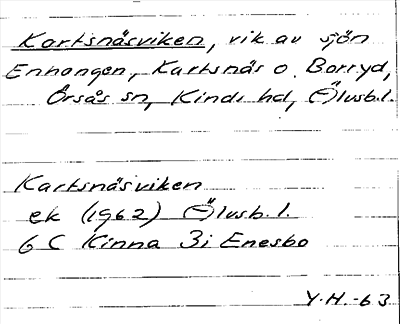 Kartsnäsviken, vik av sjön
Enhongen, Kartsnäs o. Borryd,
Örsås sn, Kinds hd, Älvsb.l.
Kartsnäsviken
ek (1962) Älvsb.l.
6 C Kinna 3i Enesbo
Y.H.-63